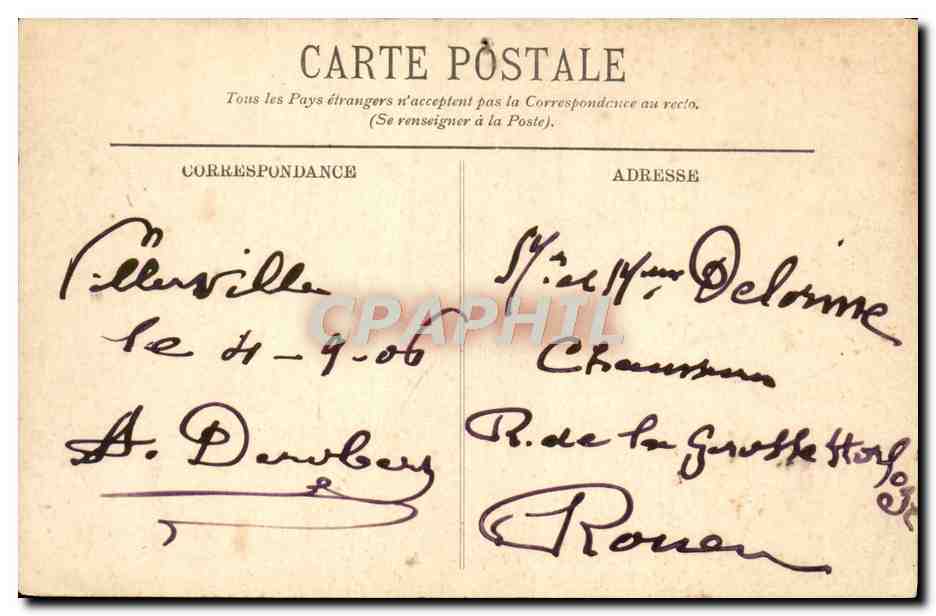 CARTE POSTALE
Tous les Pays étrangers n'acceptent pas la Correspondance au recto.
(Se renseigner à la Poste).
CORRESPONDANCE
Villerville
le 4-9-06
A. Derobert
ADRESSE
Mr et Mme Delorme
Chausseur
R. de la Grosse Horloge
Rouen
CPAPHIL